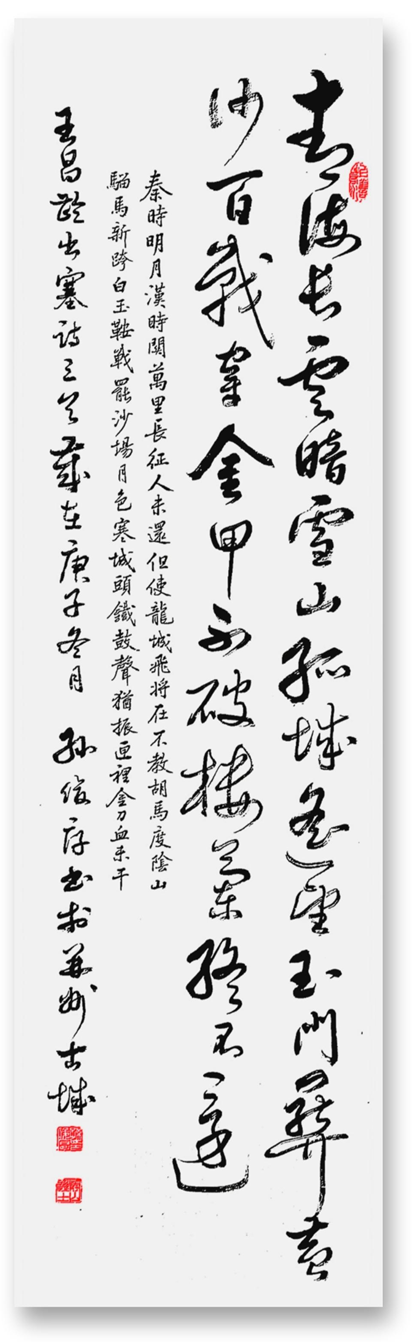 青海長雲暗雪山孤城遥望玉門關黄
沙百戰穿金甲不破樓蘭終不還
秦時明月漢時關萬里長征人未還但使龍城飛將在不教胡馬度陰山
騮馬新跨白玉鞍戰罷沙場月色寒城頭鐵鼓聲猶振匣裡金刀血未干
王昌齡出塞詩三首歲在庚子冬月 孫俊存书於並州古城